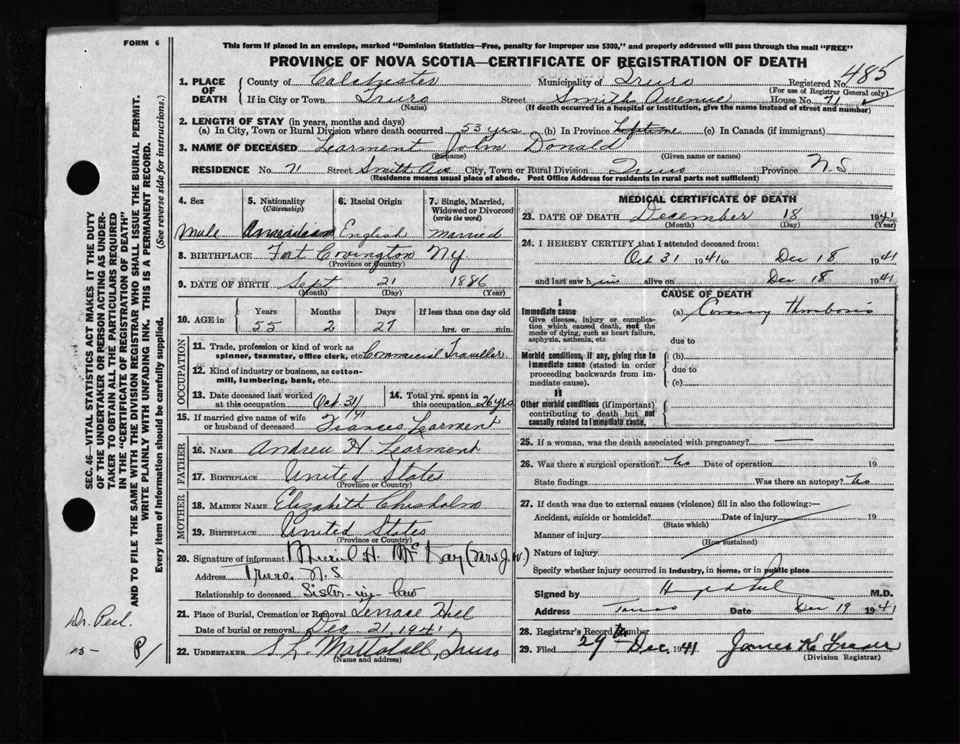 FORM 6
This form if placed in an envelope, marked "Dominion Statistics—Free, penalty for improper use $300," and properly addressed will pass through the mail "FREE"
PROVINCE OF NOVA SCOTIA—CERTIFICATE OF REGISTRATION OF DEATH
485
1. PLACE OF DEATH County of Colchester Municipality of Truro Registered No.
(For use of Registrar General only)
If in City or Town Truro Street Smith Avenue House No. 71
(Name) (If death occurred in a hospital or institution, give the name instead of street and number)
2. LENGTH OF STAY (in years, months and days)
(a) In City, Town or Rural Division where death occurred 53 yrs (b) In Province Lifetime (c) In Canada (if immigrant)
3. NAME OF DECEASED Learment John Donald
(Surname) (Given name or names)
RESIDENCE No. 71 Street Smith Ave City, Town or Rural Division Truro Province N.S
(Residence means usual place of abode. Post Office Address for residents in rural parts not sufficient)
4. Sex 5. Nationality (Citizenship) 6. Racial Origin 7. Single, Married, Widowed or Divorced (write the word)
Male American English Married
8. BIRTHPLACE Fort Covington N.Y
(Province or Country)
9. DATE OF BIRTH Sept 21 1886
(Month) (Day) (Year)
10. AGE in Years Months Days If less than one day old
55 2 27 hrs. or min.
OCCUPATION
11. Trade, profession or kind of work as spinner, teamster, office clerk, etc. Commercial Traveller
12. Kind of industry or business, as cotton-mill, lumbering, bank, etc.
13. Date deceased last worked at this occupation Oct 31/41 14. Total yrs. spent in this occupation 26 yrs
15. If married give name of wife or husband of deceased Frances Learment
FATHER
16. NAME Andrew H. Learment
17. BIRTHPLACE United States
(Province or Country)
MOTHER
18. MAIDEN NAME Elizabeth Chisholm
19. BIRTHPLACE United States
(Province or Country)
20. Signature of informant H. McKay (Mrs J.W.)
Address Truro. N.S.
Relationship to deceased Sister-in-law
21. Place of Burial, Cremation or Removal Terrace Hill
Date of burial or removal Dec 21, 1941
22. UNDERTAKER Mattatall, Truro
(Name and address)
MEDICAL CERTIFICATE OF DEATH
23. DATE OF DEATH December 18 1941
(Month) (Day) (Year)
24. I HEREBY CERTIFY that I attended deceased from:
Oct 31 1941 to Dec 18 1941
and last saw him alive on Dec 18 1941
CAUSE OF DEATH
I
Immediate cause (a) Coronary Thrombosis
Give disease, injury or complication which caused death, not the mode of dying, such as heart failure, asphyxia, asthenia, etc.
due to
Morbid conditions, if any, giving rise to immediate cause (stated in order proceeding backwards from immediate cause).
(b)
due to
(c)
II
Other morbid conditions (if important) contributing to death but not causally related to immediate cause.
25. If a woman, was the death associated with pregnancy?
26. Was there a surgical operation? No Date of operation 19
State findings Was there an autopsy? No
27. If death was due to external causes (violence) fill in also the following:—
Accident, suicide or homicide? Date of injury 19
(State which)
Manner of injury
(How sustained)
Nature of injury
Specify whether injury occurred in industry, in home, or in public place
Signed by M.D.
Address Truro Date Dec 19 1941
28. Registrar's Record Number
29. Filed 29 Dec. 1941 James K. Fraser
(Division Registrar)
SEC. 46—VITAL STATISTICS ACT MAKES IT THE DUTY
OF THE UNDERTAKER OR PERSON ACTING AS UNDER-
TAKER TO OBTAIN ALL THE PARTICULARS REQUIRED
IN THE "CERTIFICATE OF REGISTRATION OF DEATH"
AND TO FILE THE SAME WITH THE DIVISION REGISTRAR WHO SHALL ISSUE THE BURIAL PERMIT.
WRITE PLAINLY WITH UNFADING INK. THIS IS A PERMANENT RECORD.
Every item of Information should be carefully supplied. (See reverse side for instructions.)
Dr. Peel.